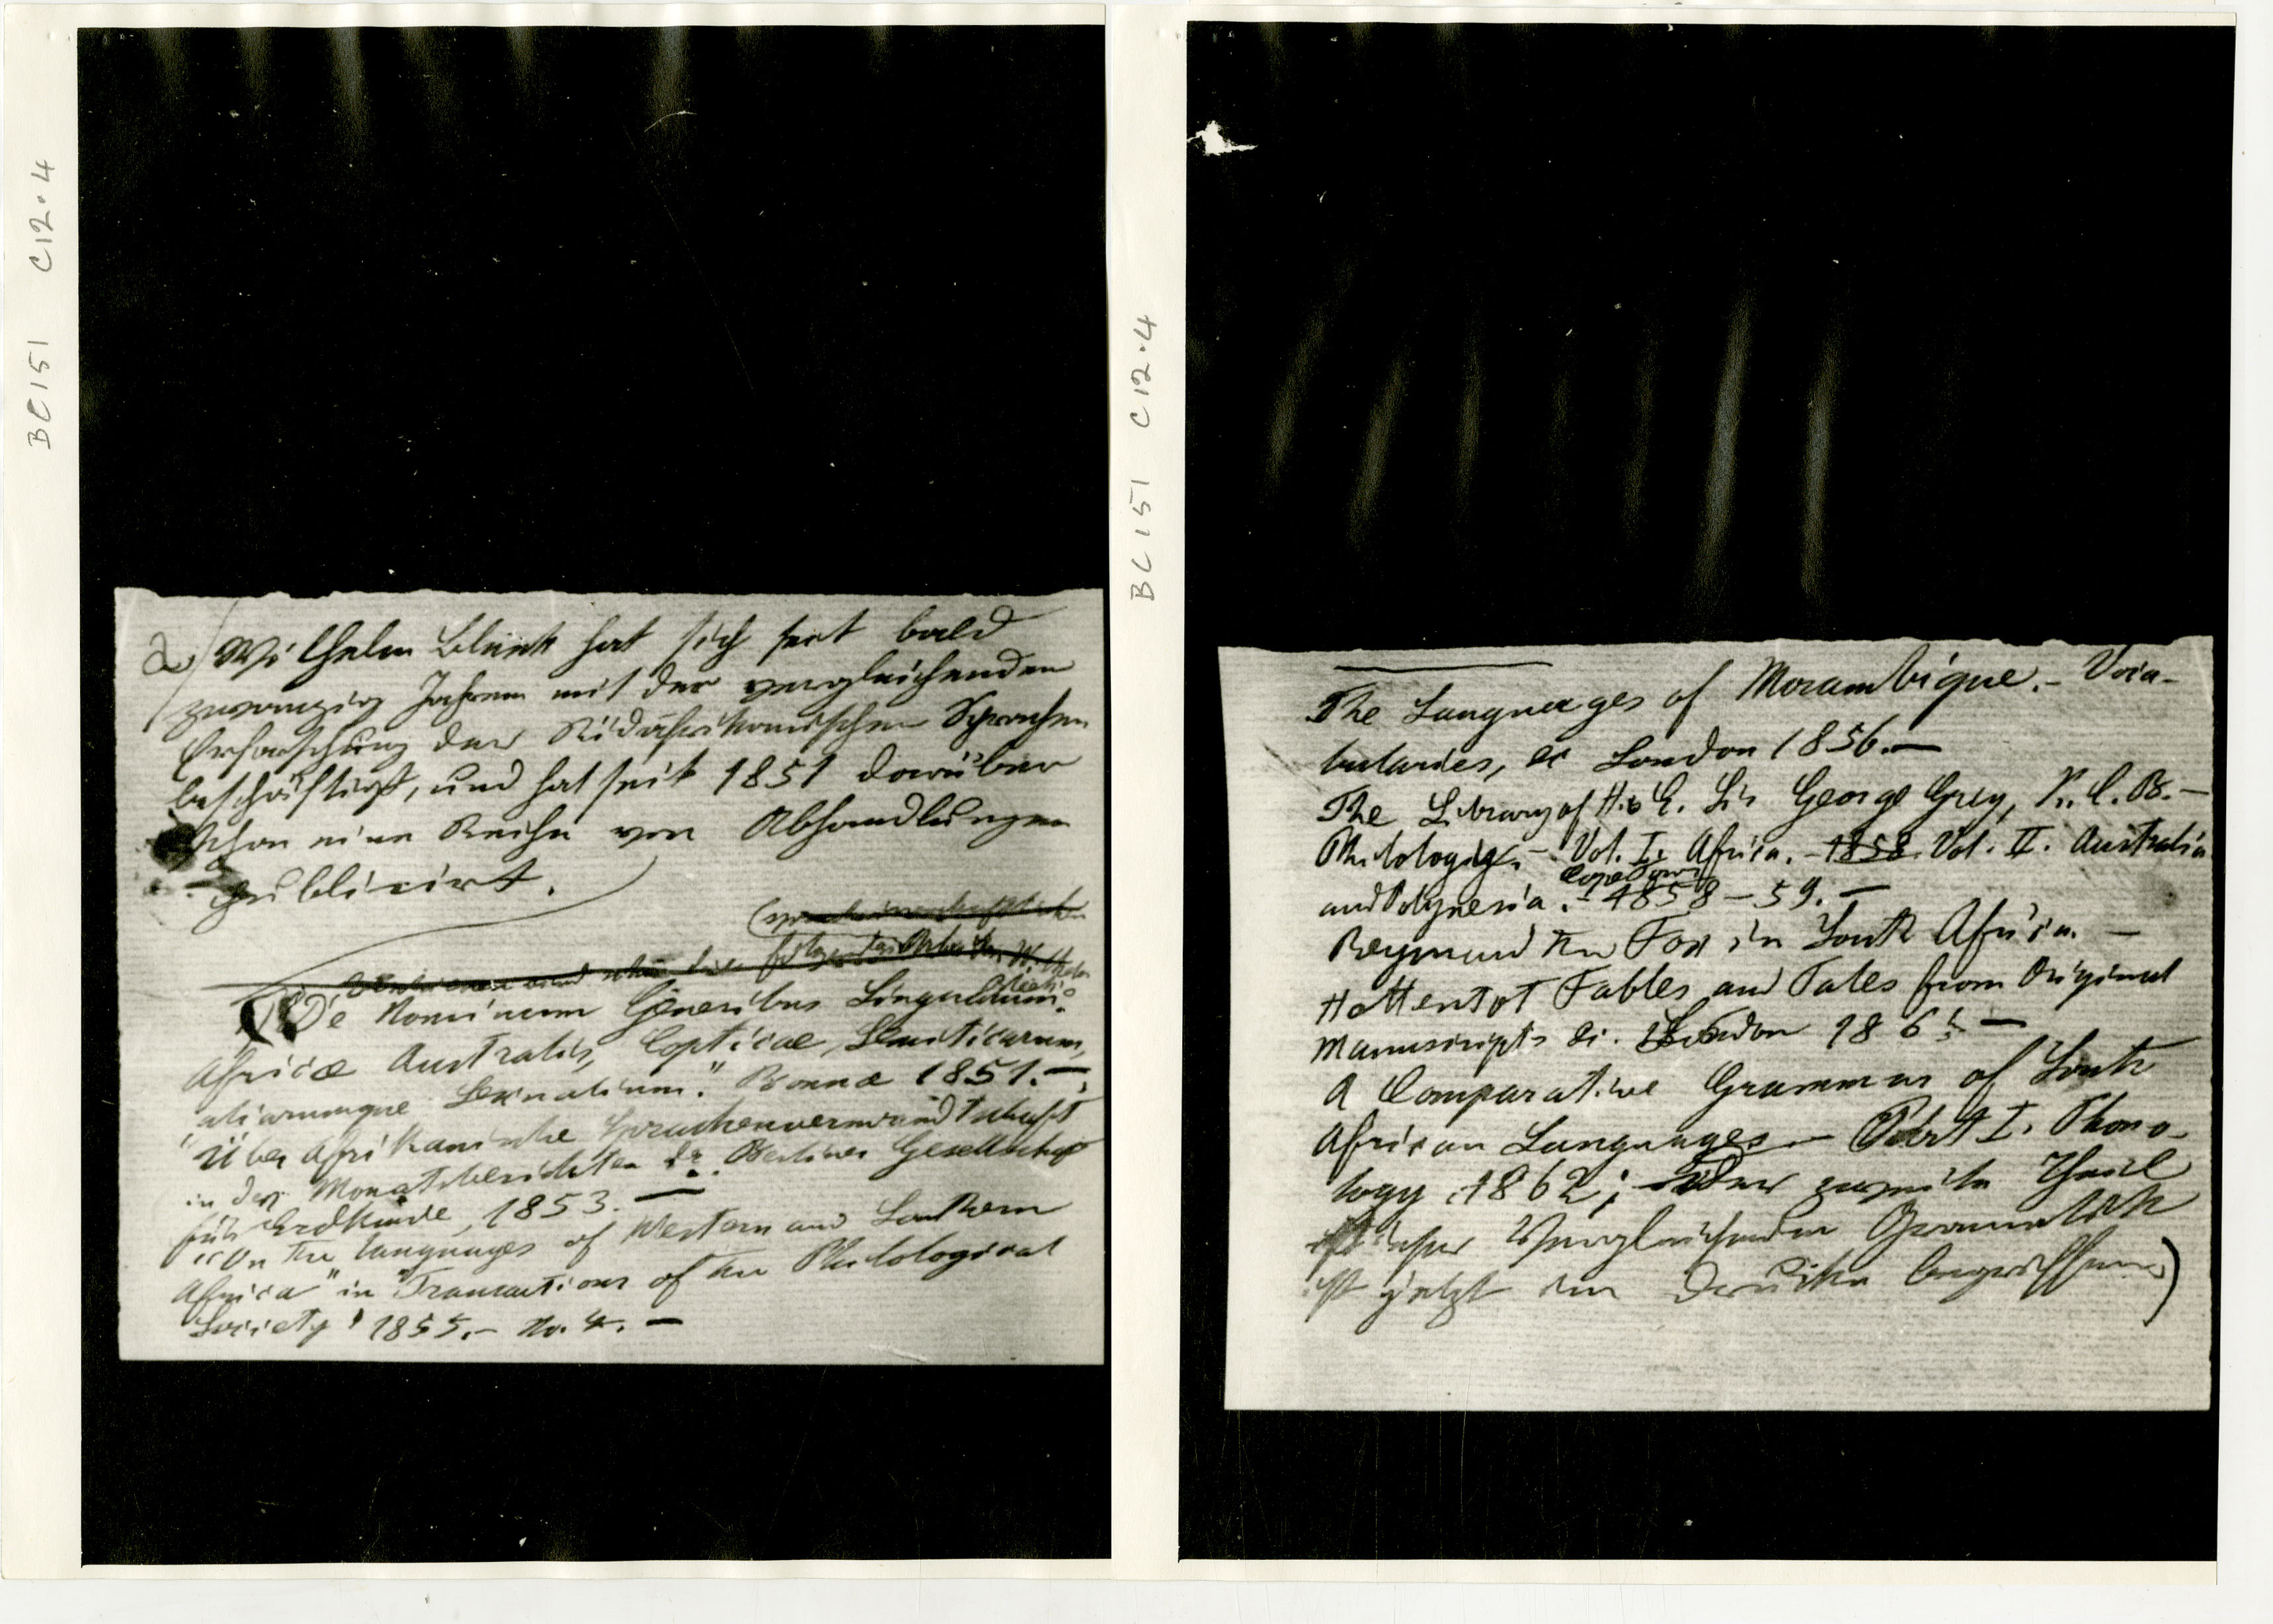 BC151 C12.4
a) Wilhelm Bleek hat sich seit bald
zwanzig Jahren mit der vergleichenden
Erforschung der Südafrikanischen Sprachen
beschäftigt, und hat seit 1851 darüber
schon eine Reihe von Abhandlungen
publicirt.
De Nominum Generibus Linguarum
Africæ Australis, Copticae, Semiticarum,
aliarumque Sexualium." Bonnæ 1851. —
"Über Afrikanische Sprachenverwandtschaft
in den Monatsberichten der Berliner Gesellschaft
für Erdkunde, 1853. —
"On the languages of Western and Southern
Africa" in "Transactions of the Philological
Society" 1855. – No. 4. —
BC151 C12.4
The Languages of Mozambique. – Voca-
bularies, &c London 1856. —
The Library of His E. Sir George Grey, K. C. B. —
Philology. – Vol. I. Africa. – 1858. Vol. II. Australia
Cape Town
and Polynesia. – 1858 – 59. —
Reynard the Fox in South Africa. —
Hottentot Fables and Tales from Original
Manuscripts &c. London 186 —
A Comparative Grammar of South
African Languages – Part I. Phono-
logy, 1862; Der zweite Theil
dieser Vergleichenden Grammatik
ist jetzt im Drucke begriffen.)